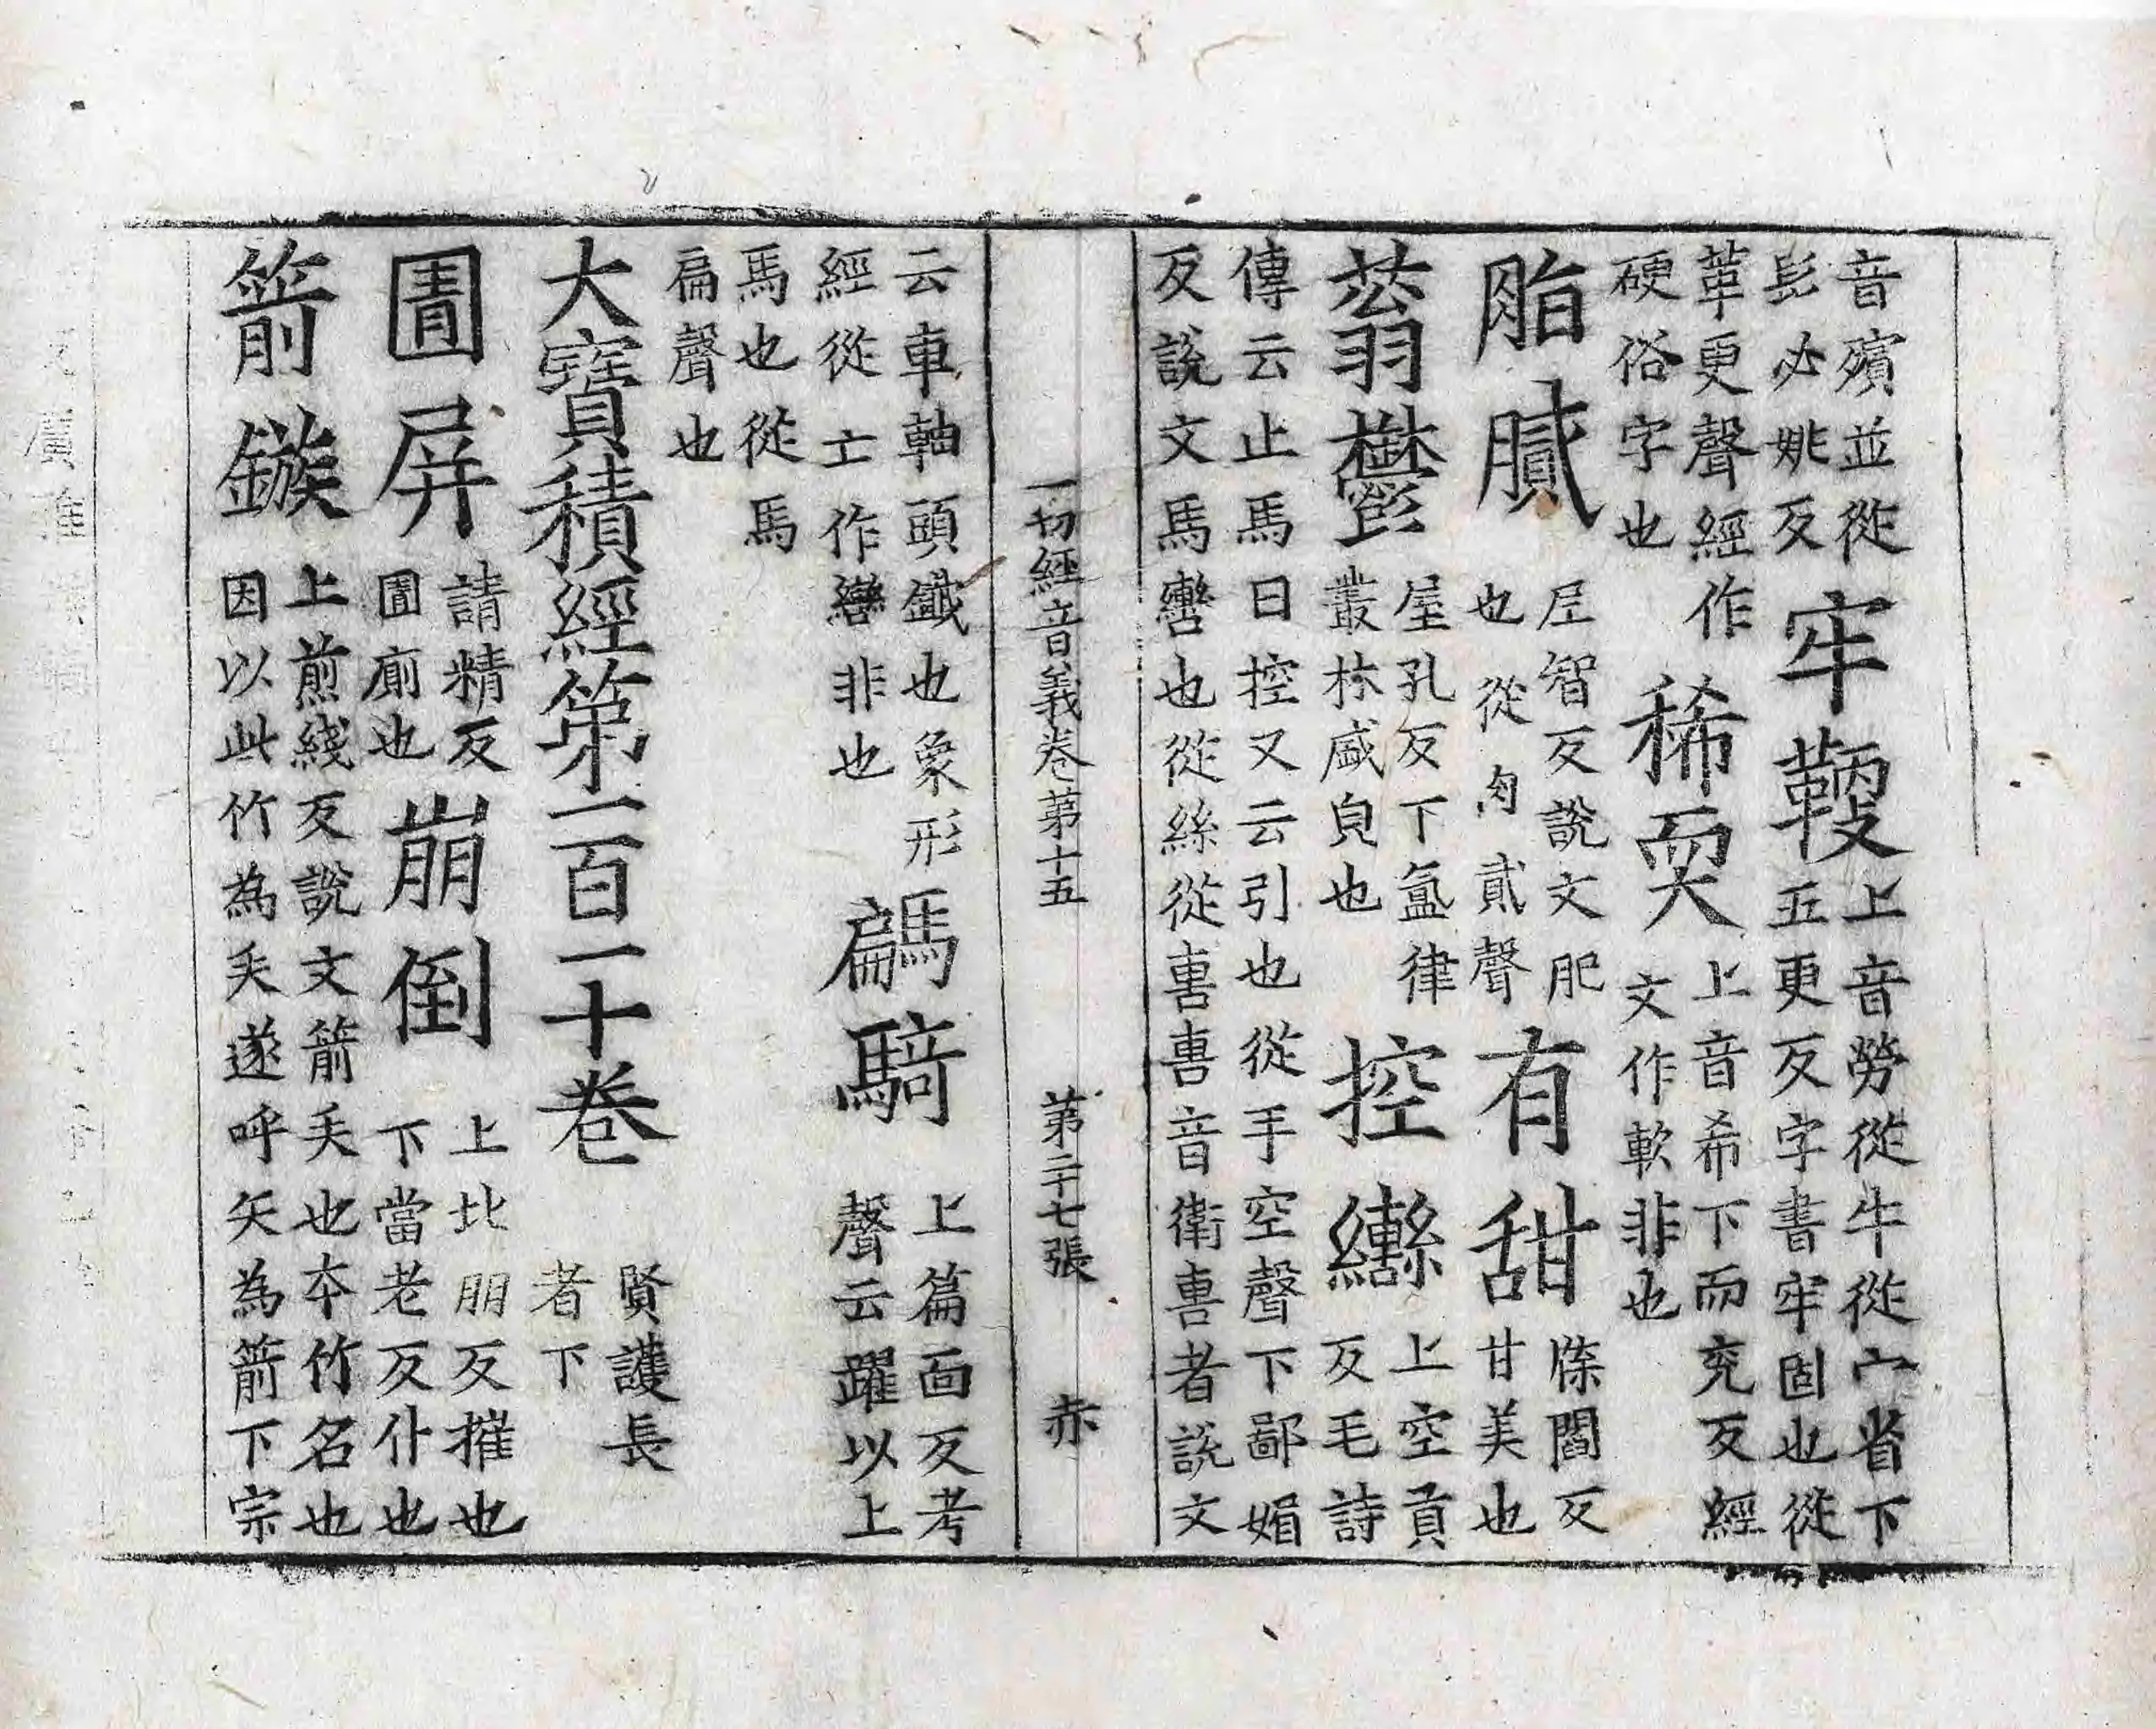 音殯並從
髟必姚反
牢鞕
上音勞從牛從宀省下
五更反字書牢固也從
革更聲經作
硬俗字也
稀耎
上音希下而兖反經
文作軟非也
脂膩
尼智反說文肥
也從肉貳聲
有甜
牒閻反
甘美也
蓊鬱
屋孔反下氳律
叢林盛皃也
控轡
上空貢
反毛詩
傳云止馬曰控又云引也從手空聲下鄙媚
反說文馬轡也從絲從軎軎音衛軎者說文
一切經音義卷第十五 第二十七張 赤
云車軸頭鐵也象形
經從亡作轡非也
騗騎
上篇面反考
聲云躍以上
馬也從馬
扁聲也
大寶積經第一百一十卷
賢護長
者下
圊屏
請精反
圊廁也
崩倒
上北朋反摧也
下當老反仆也
箭鏃
上煎綫反說文箭矢也本竹名也
因以此竹為矢遂呼矢為箭下宗